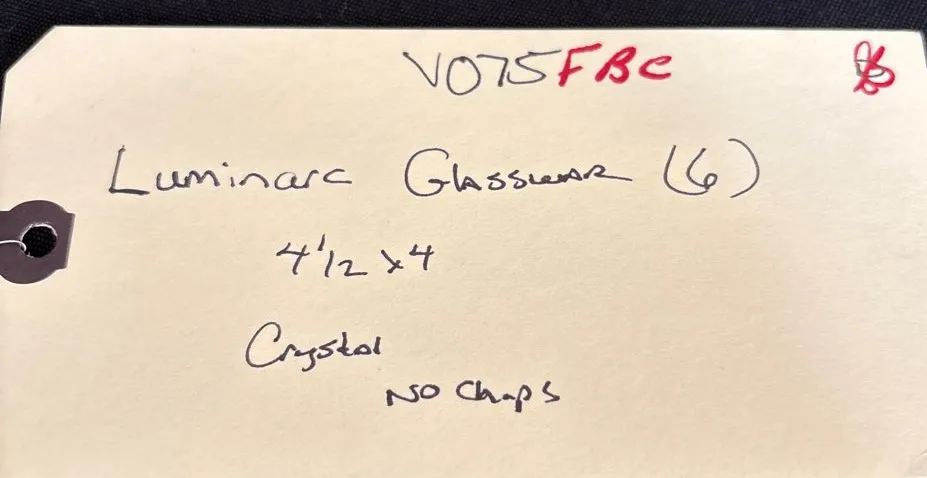 V075FBC
Luminarc Glasswear (6)
4 1/2 x 4
Crystal
No Chips